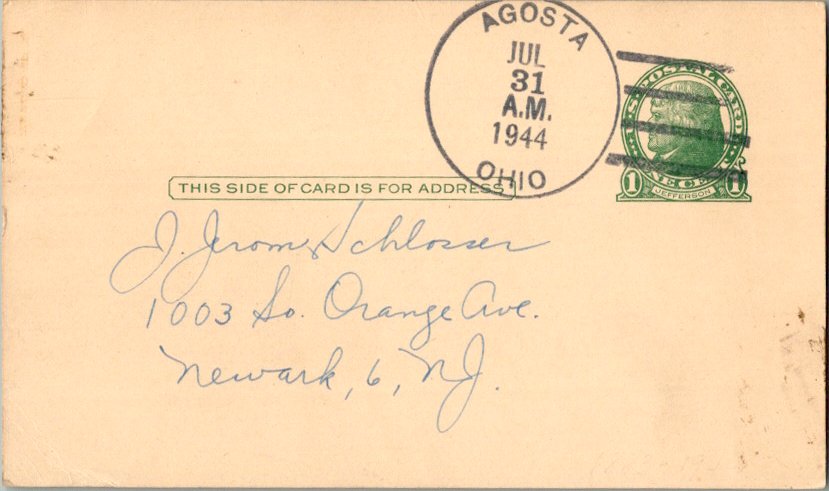 AGOSTA
JUL
31
A.M.
1944
OHIO
U.S. POSTAL CARD
1 JEFFERSON 1
THIS SIDE OF CARD IS FOR ADDRESS
J. Jerome Schlosser
1003 So. Orange Ave.
Newark, 6, NJ.